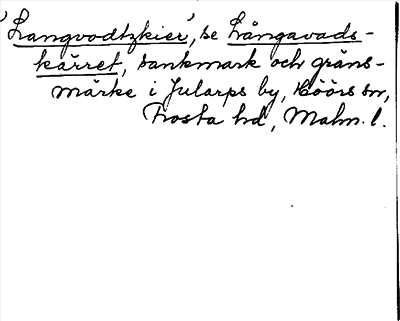 'Langvodtzkier', se Långavads-
kärret, sankmark och gräns-
märke i Jularps by, Höörs sn,
Frosta hd, Malm. l.